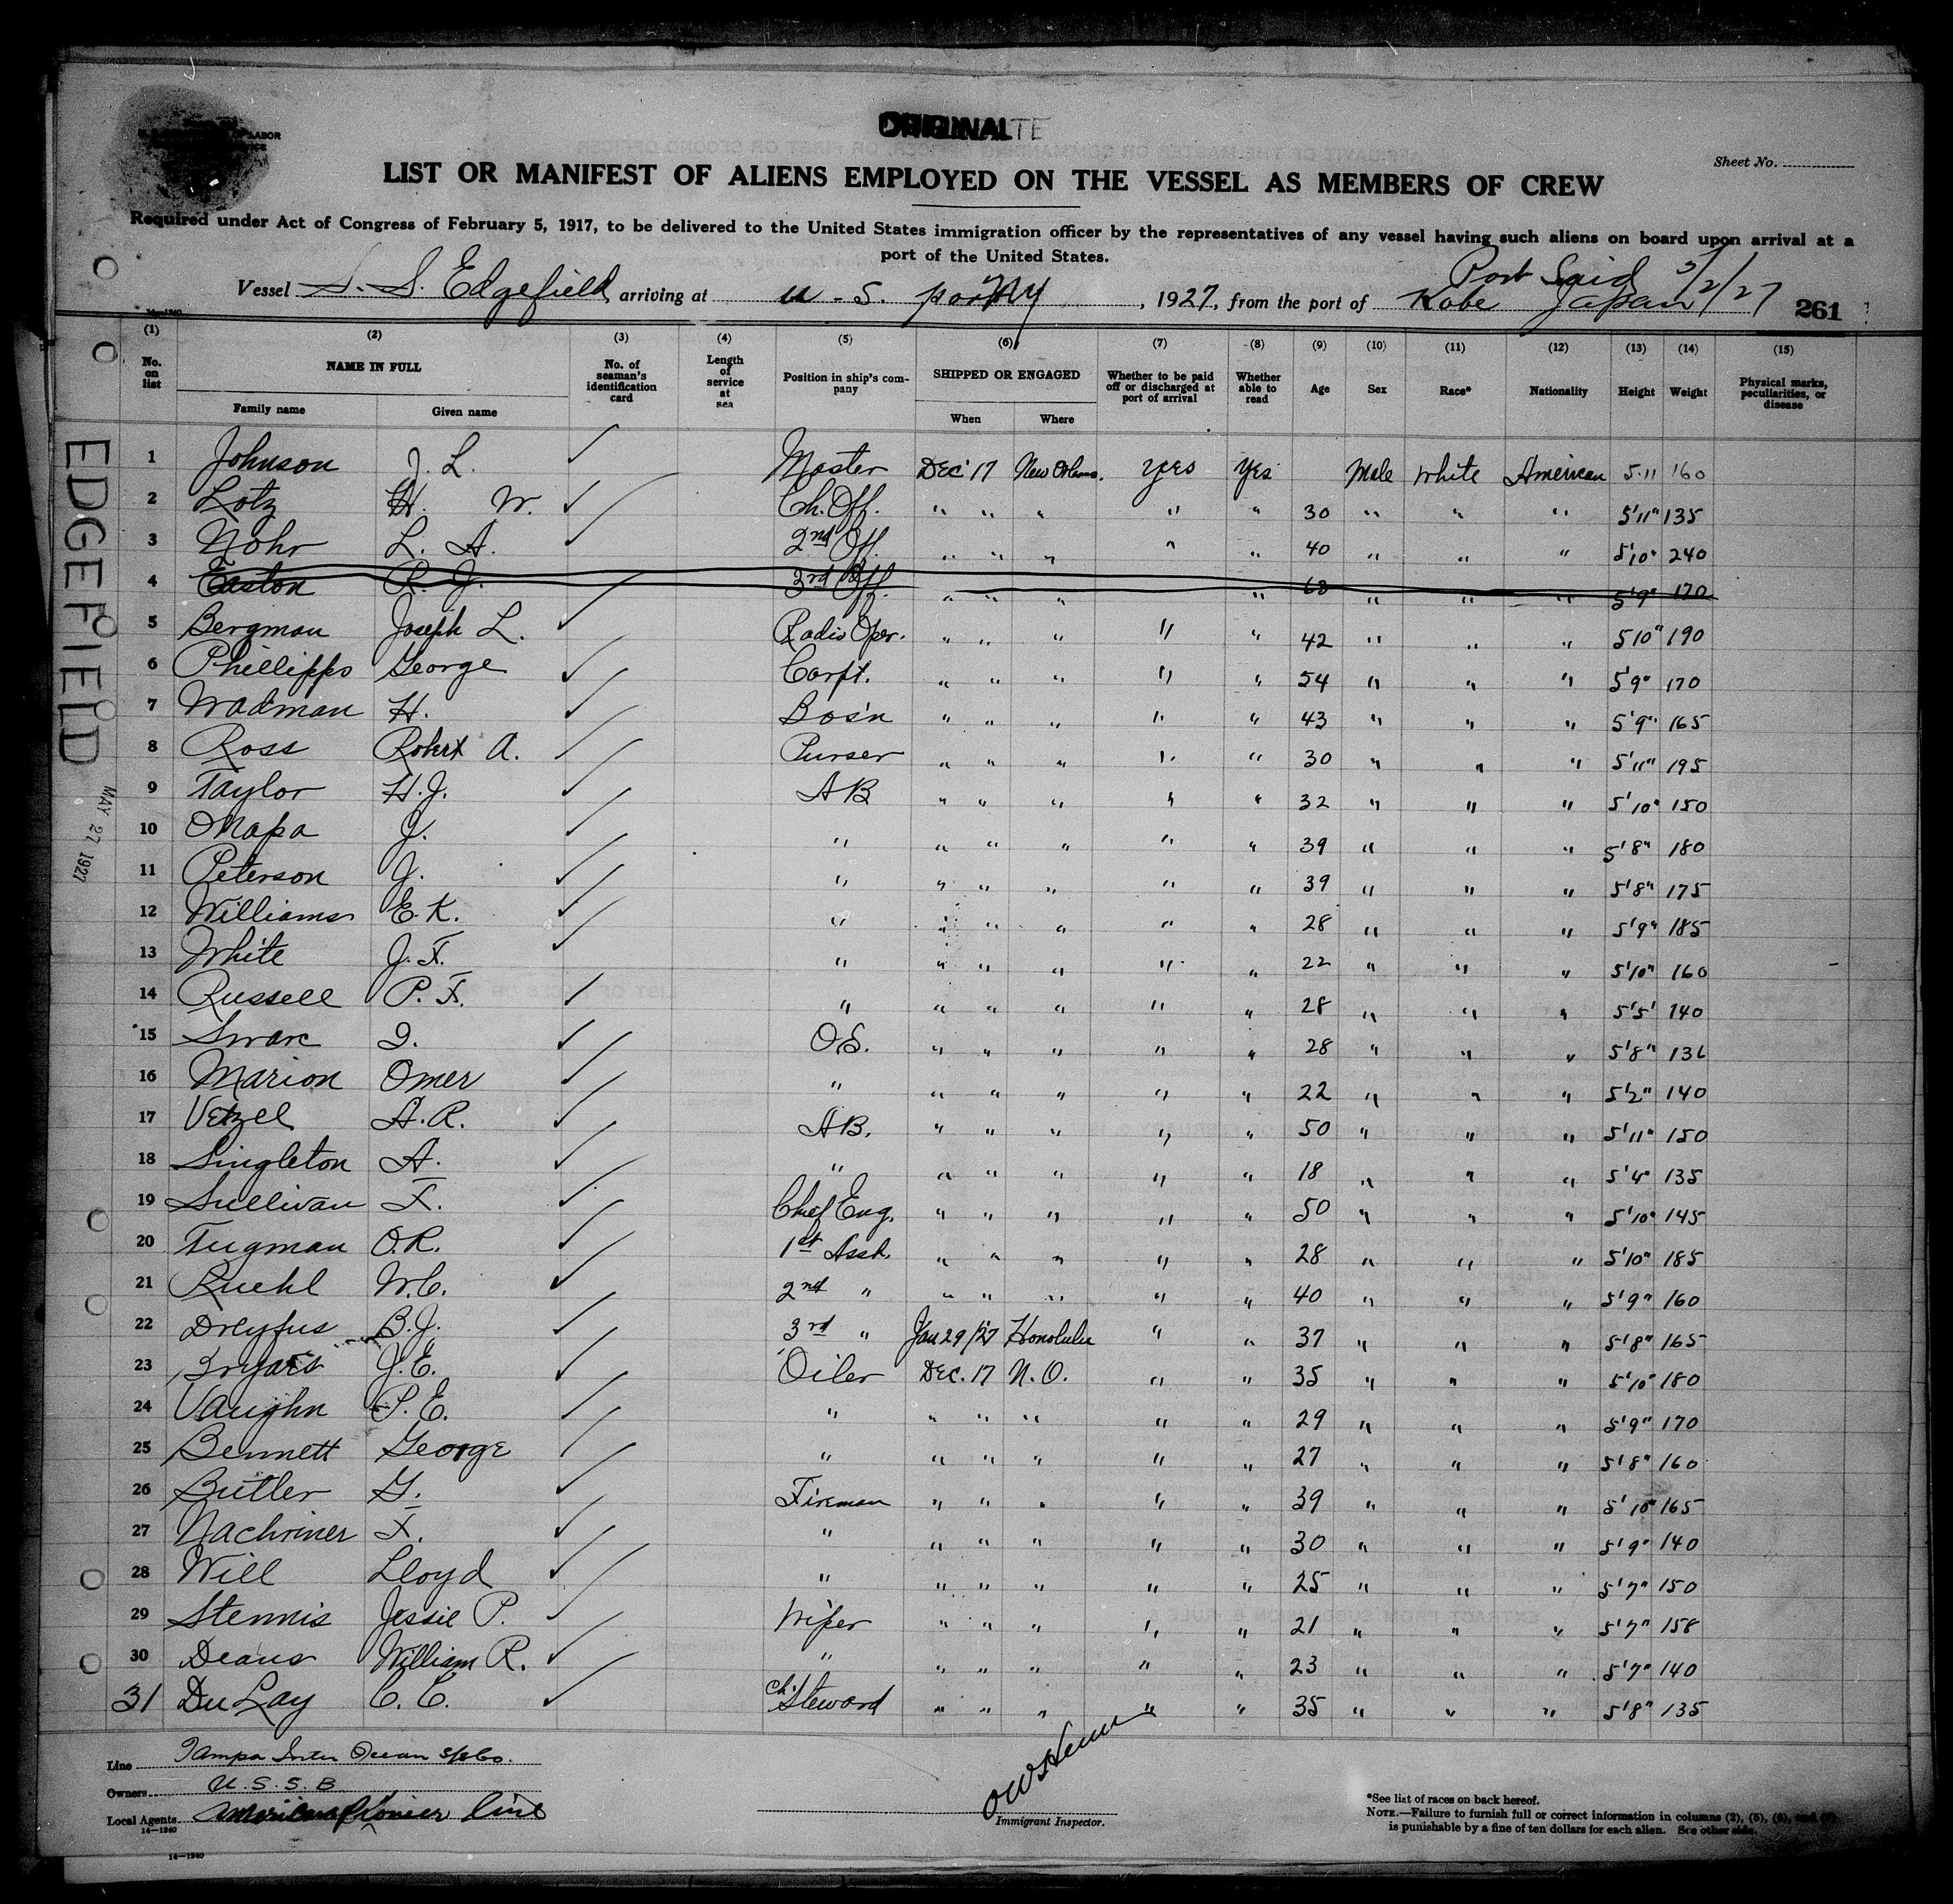 ORIGINAL
LABOR
Sheet No.
LIST OR MANIFEST OF ALIENS EMPLOYED ON THE VESSEL AS MEMBERS OF CREW
Required under Act of Congress of February 5, 1917, to be delivered to the United States immigration officer by the representatives of any vessel having such aliens on board upon arrival at a
port of the United States.
Port Said 5/2/27
Vessel S. S. Edgefield arriving at U. S. port NY, 1927, from the port of Kobe Japan 261
(1) (2) (3) (4) (5) (6) (7) (8) (9) (10) (11) (12) (13) (14) (15)
No. on list NAME IN FULL Family name Given name No. of seaman's identification card Length of service at sea Position in ship's company SHIPPED OR ENGAGED When Where Whether to be paid off or discharged at port of arrival Whether able to read Age Sex Race* Nationality Height Weight Physical marks, peculiarities, or disease
EDGEFIELD
MAY 27 1927
1 Johnson J. L. ✓ Master Dec 17 New Orleans. yes yes Male White American 5.11 160
2 Lotz H. W. ✓ Ch. Off. " " " " " 30 " " " 5'11" 135
3 Nohr L. A. ✓ 2nd Off. " " " " " 40 " " " 5'10" 240
4 Easton R. J. 3rd Off. " " " " 63 " " " 5'9" 170
5 Bergman Joseph L. ✓ Radio Oper. " " " " " 42 " " " 5'10" 190
6 Phillipps George ✓ Carpt. " " " " " 54 " " " 5'9" 170
7 Wadman H. ✓ Bos'n " " " " " 43 " " " 5'9" 165
8 Ross Robert A. ✓ Purser " " " " " 30 " " " 5'11" 195
9 Taylor H. J. ✓ AB " " " " " 32 " " " 5'10" 150
10 J. ✓ " " " " " " 39 " " " 5'8" 180
11 Peterson J. ✓ " " " " " " 39 " " " 5'8" 175
12 Williams E. K. ✓ " " " " " " 28 " " " 5'9" 185
13 White J. F. ✓ " " " " " " 22 " " " 5'10" 160
14 Russell P. F. ✓ " " " " " " 28 " " " 5'5" 140
15 Swarc ✓ O.S. " " " " " 28 " " " 5'8" 136
16 Marion Omer ✓ " " " " " " 22 " " " 5'2" 140
17 Vetzel A. R. ✓ AB. " " " " " 50 " " " 5'11" 150
18 Singleton A. ✓ " " " " " " 18 " " " 5'4" 135
19 Sullivan F. ✓ Chief Eng. " " " " " 50 " " " 5'10" 145
20 Tugman O. R. ✓ 1st Asst. " " " " " 28 " " " 5'10" 185
21 Ruehl W. C. ✓ 2nd " " " " " " 40 " " " 5'9" 160
22 Dreyfus B. J. ✓ 3rd " Jan 29/27 Honolulu " " 37 " " " 5'8" 165
23 Bryars J. E. ✓ Oiler Dec. 17 N. O. " " 35 " " " 5'10" 180
24 Vaughn P. E. ✓ " " " " " " 29 " " " 5'9" 170
25 Bennett George ✓ " " " " " " 27 " " " 5'8" 160
26 Butler G. ✓ Fireman " " " " " 39 " " " 5'10" 165
27 Nachriner F. ✓ " " " " " " 30 " " " 5'9" 140
28 Will Lloyd ✓ " " " " " " 25 " " " 5'7" 150
29 Stennis Jessie P. ✓ Wiper " " " " " 21 " " " 5'7" 158
30 Deans William R. ✓ " " " " " " 23 " " " 5'7" 140
31 Du Lay C. C. ✓ Ch. Steward " " " " " 35 " " " 5'8" 135
Line Tampa Inter Ocean S/S Co.
Owners U. S. S. B
Local Agents American Pioneer Line
14—1240
Immigrant Inspector.
*See list of races on back hereof.
NOTE.—Failure to furnish full or correct information in columns (2), (5), (6), and (7)
is punishable by a fine of ten dollars for each alien. See other side.
14—1240